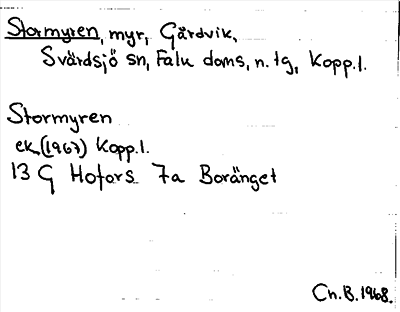 Stormyren, myr, Gårdvik,
Svärdsjö sn, Falu doms. n. tg, Kopp. l.
Stormyren
ek. (1967) Kopp. l.
13 G Hofors 7a Boränget
Ch. B. 1968.